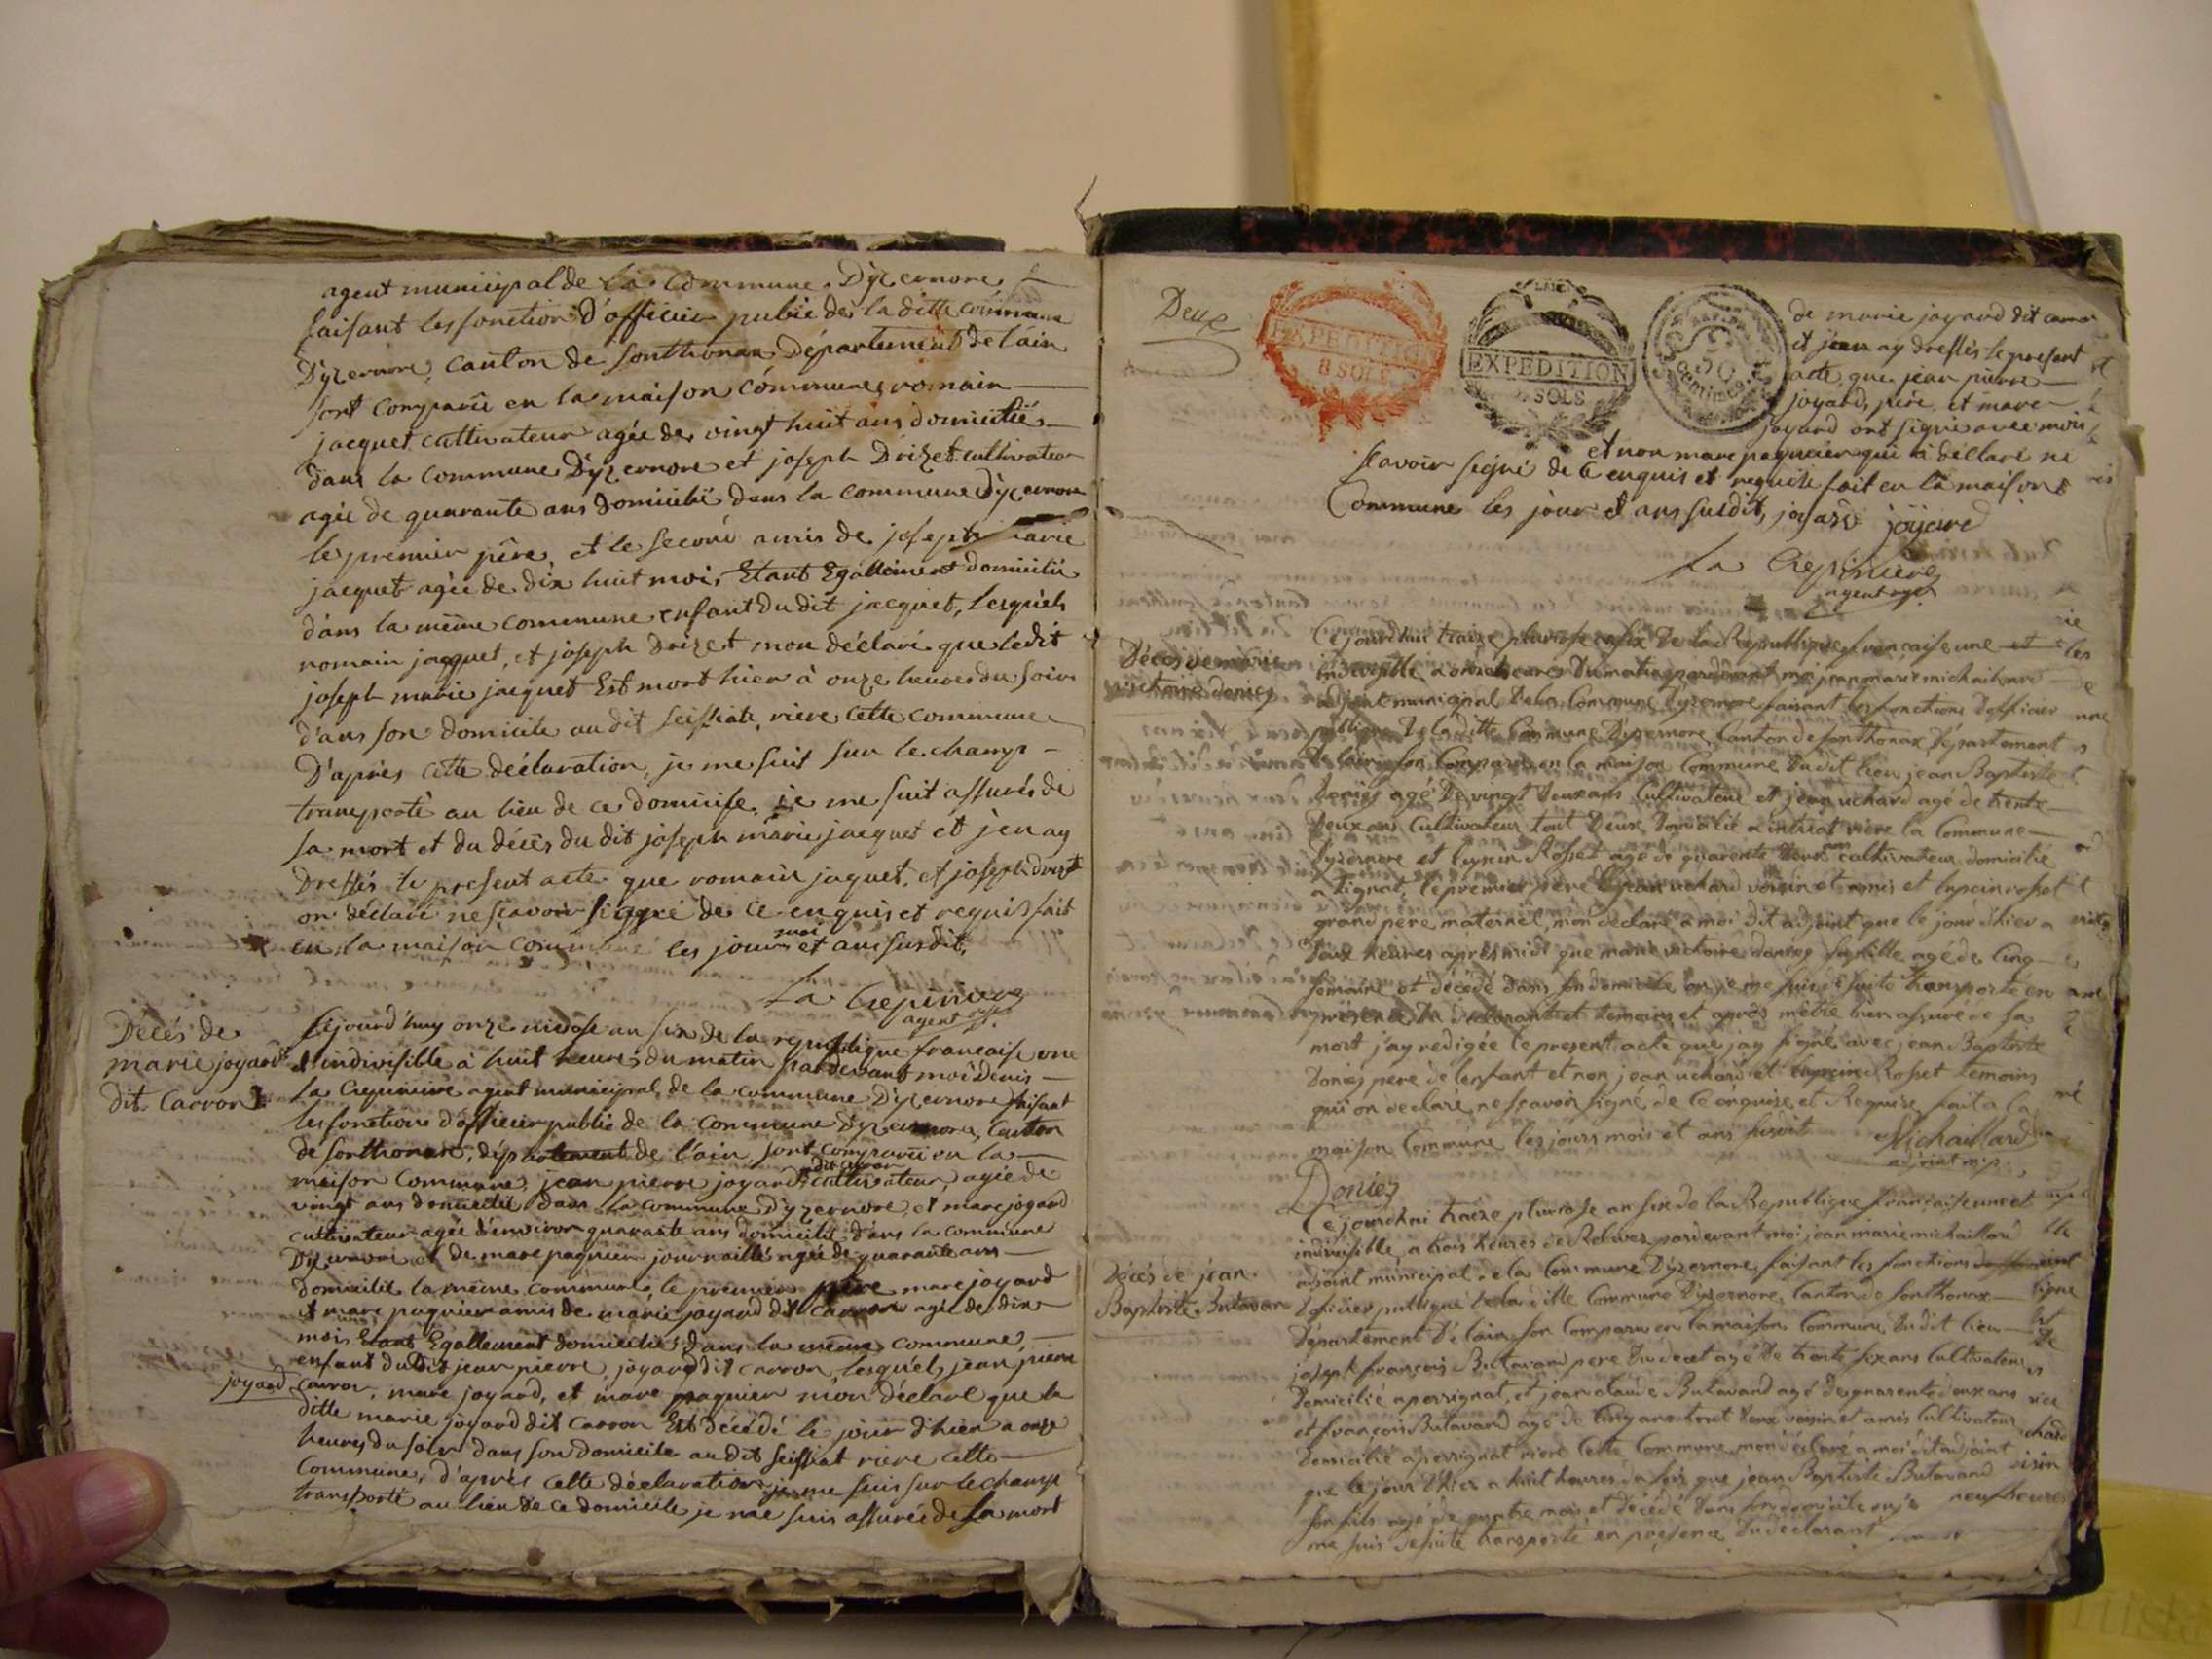 agent municipal de la Commune D'yzernore
faisant les fonction d'officier publie de la ditte commune
D'yzernore, canton de Sonthonax Département de l'ain
sont comparû en la maison commune romain
jacquet cultivateur agée de vingt huit ans domicilié
dans la commune D'yzernore et joseph Drizet cultivateur
agée de quarante ans domicilié dans la commune D'yzernore
le premier père et le second amis de joseph marie
jacquet agée de dix huit mois, Etant Egallement domicilié
dans la même commune enfant du dit jacquet, lesquels
romain jacquet, et joseph drizet mon déclaré que ledit
joseph marie jacquet Est mort hier à onze heures du soir
dans son domicile au dit seissiat riere cette commune
D'après cette déclaration, je me suit sur le champ
transporté au lieu de ce domicile je me suit assurés de
sa mort et du décès du dit joseph marie jacquet et j'en ay
Dressés le present acte que romain jaquet, et joseph drizet
on déclaré ne scavoir signé de ce enquis et requis fait
en la maison commune les jours mois et ans susdit,
La Crepiniere
agent
Décès de
marie joyard
dit Carron
Cejourd'huy onze nivose an six de la republique francaise une
et indivisible à huit heures du matin pardevant moi Denis
La Crepiniere agent municipal de la commune D'yzernore faisant
les fonctions d'officier public de la commune D'yzernore, Canton
de Sonthonax, département de l'ain sont comparû en la
maison commune, jean pierre joyard dit carron cultivateur, agée de
vingt ans domicilié dans la commune D'yzernore, et marc joyard
cultivateur agée d'environ quarante ans domicilié dans la commune
D'yzernore et de marc paquier journaillé agée de quarante ans
domicilié la même commune, le premier père marc joyard
et marc paquier amis de marie joyard dit carron agée de dix
mois Etant Egallement domicilié dans la même commune,
enfant dudit jean pierre joyard dit carron, lesquels jean pierre
joyard carron, marc joyard, et marc paquier m'on déclaré que la
ditte marie joyard dit carron Est décédé le jour d'hier a onze
heures du soir dans son domicile au dit seissiat riere cette
Commune, d'après cette déclaration je me suis sur le champ
transporté au lieu de ce domicile je me suis assurée de sa mort
Deux
EXPEDITION
8 SOLS
EXPEDITION
SOLS
50
de marie joyard dit carron
et j'en ay dressés le present
acte que jean pierre
joyard, père et marc
joyard ont signé avec moi
et non marc paquier qui a déclaré ne
scavoir signé de ce enquis et requis fait en la maison
Commune les jour et ans susdit, joyard joyard
La Crepiniere
agent
Décès de marie
victoire doniez
Cejourdhui traize pluviose an six de la Republique francaise une et
indivisible a onze heures du matin pardevant moi jean marie michaillard
adjoint municipal de la Commune D'yzernore faisant les fonctions d'officier
publique de la ditte Commune D'yzernore, Canton de sonthonax Département
de l'ain son Comparû en la maison Commune dudit lieu jean Baptiste
Doniez agé de vingt deux ans Cultivateur et jean uchard agé de trente
deux ans Cultivateur tout deux domicilié a intriat riere la Commune
D'yzernore et Rosset agé de quarente deux ans cultivateur domicilié
a tignat, le premier père le jean uchard voisin et amis et rosset
grand père maternel, mon déclaré a moi dit adjoint que le jour d'hier a
deux heures après midi que marie victoire doniez sa fille agé de Cinq
semaine et décédé dans son domicile ou je me suis de suite transporté en
présence du declarant et temoins et après mettre bien assuré de sa
mort j'ay redigée le present acte que jay signé avec jean Baptiste
Doniez pere de lenfant et non jean uchard et Rosset temoins
qui on declaré ne scavoir signé de ce enquise et Requise fait a la
maison Commune les jours mois et ans susdit Michaillard
adjoint
Doniez
Décès de jean
Baptiste Butavan
Cejourdhui traize pluviose an six de la Republique francaise une et
indivisible a trois heures de Relever pardevant moi jean marie michaillard
adjoint municipal de la Commune D'yzernore faisant les fonctions
Dofficier publique de la ditte Commune D'yzernore Canton de sonthonax
Département De lain son Comparu en la maison Commune dudit lieu
joseph françois Butavand pere agé de trente six ans Cultivateur
Domicilié a perrignat, et jean claude Butavand agé de quarente deux ans
et françois Butavand agé de ans tout deux voisin et amis Cultivateur
Domicilié a perrignat riere Cette Commune mon déclaré a moi dit adjoint
que le jour d'hier a huit heures du soir que jean Baptiste Butavand
son fils agé de quatre mois et décédé dans son domicile ou je
me suis de suite transporté en présence du declarant
neuf heures